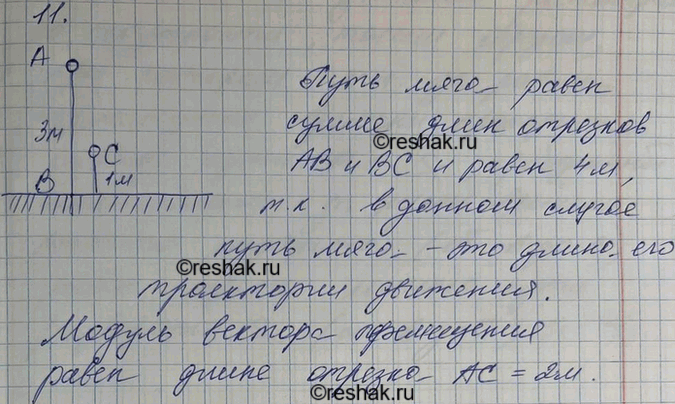 11.
A
Путь мяча равен
сумме длин отрезков
3м
C
©reshak.ru
AB и BC и равен 4м,
B
1м
т.к. в данном случае
путь мяча - это длина его
©reshak.ru
траектории движения.
Модуль вектора перемещения
равен длине отрезка AC = 2м.
©reshak.ru